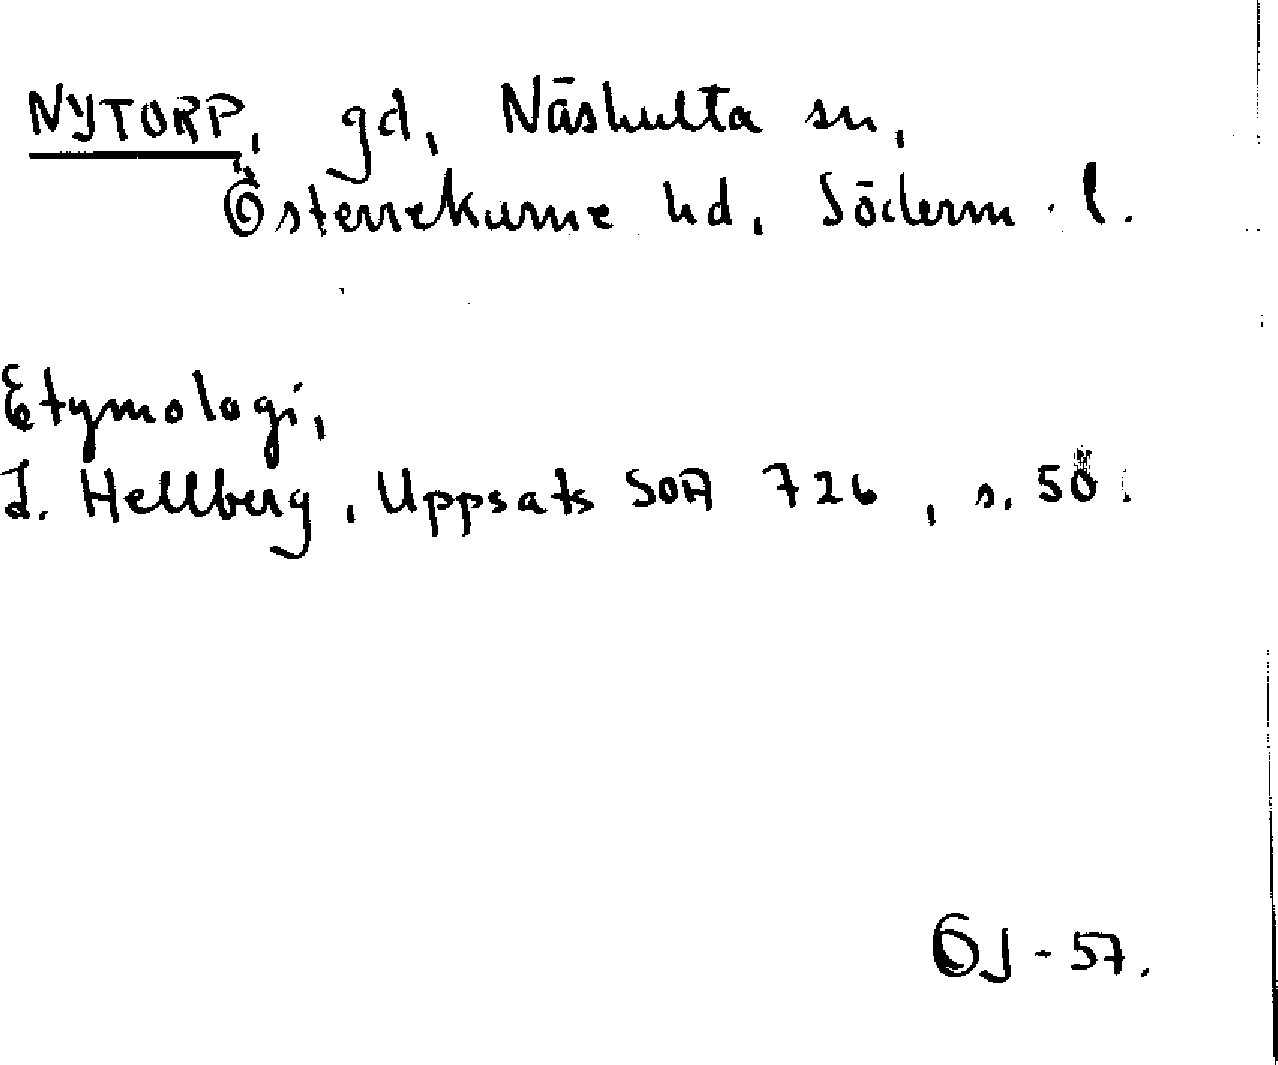 NYTORP, gd, Näshulta sn,
Österrekarne hd, Söderm. l.
Etymologi,
L. Hellberg, Uppsats SOA 726, s. 50.
ÖJ - 57.